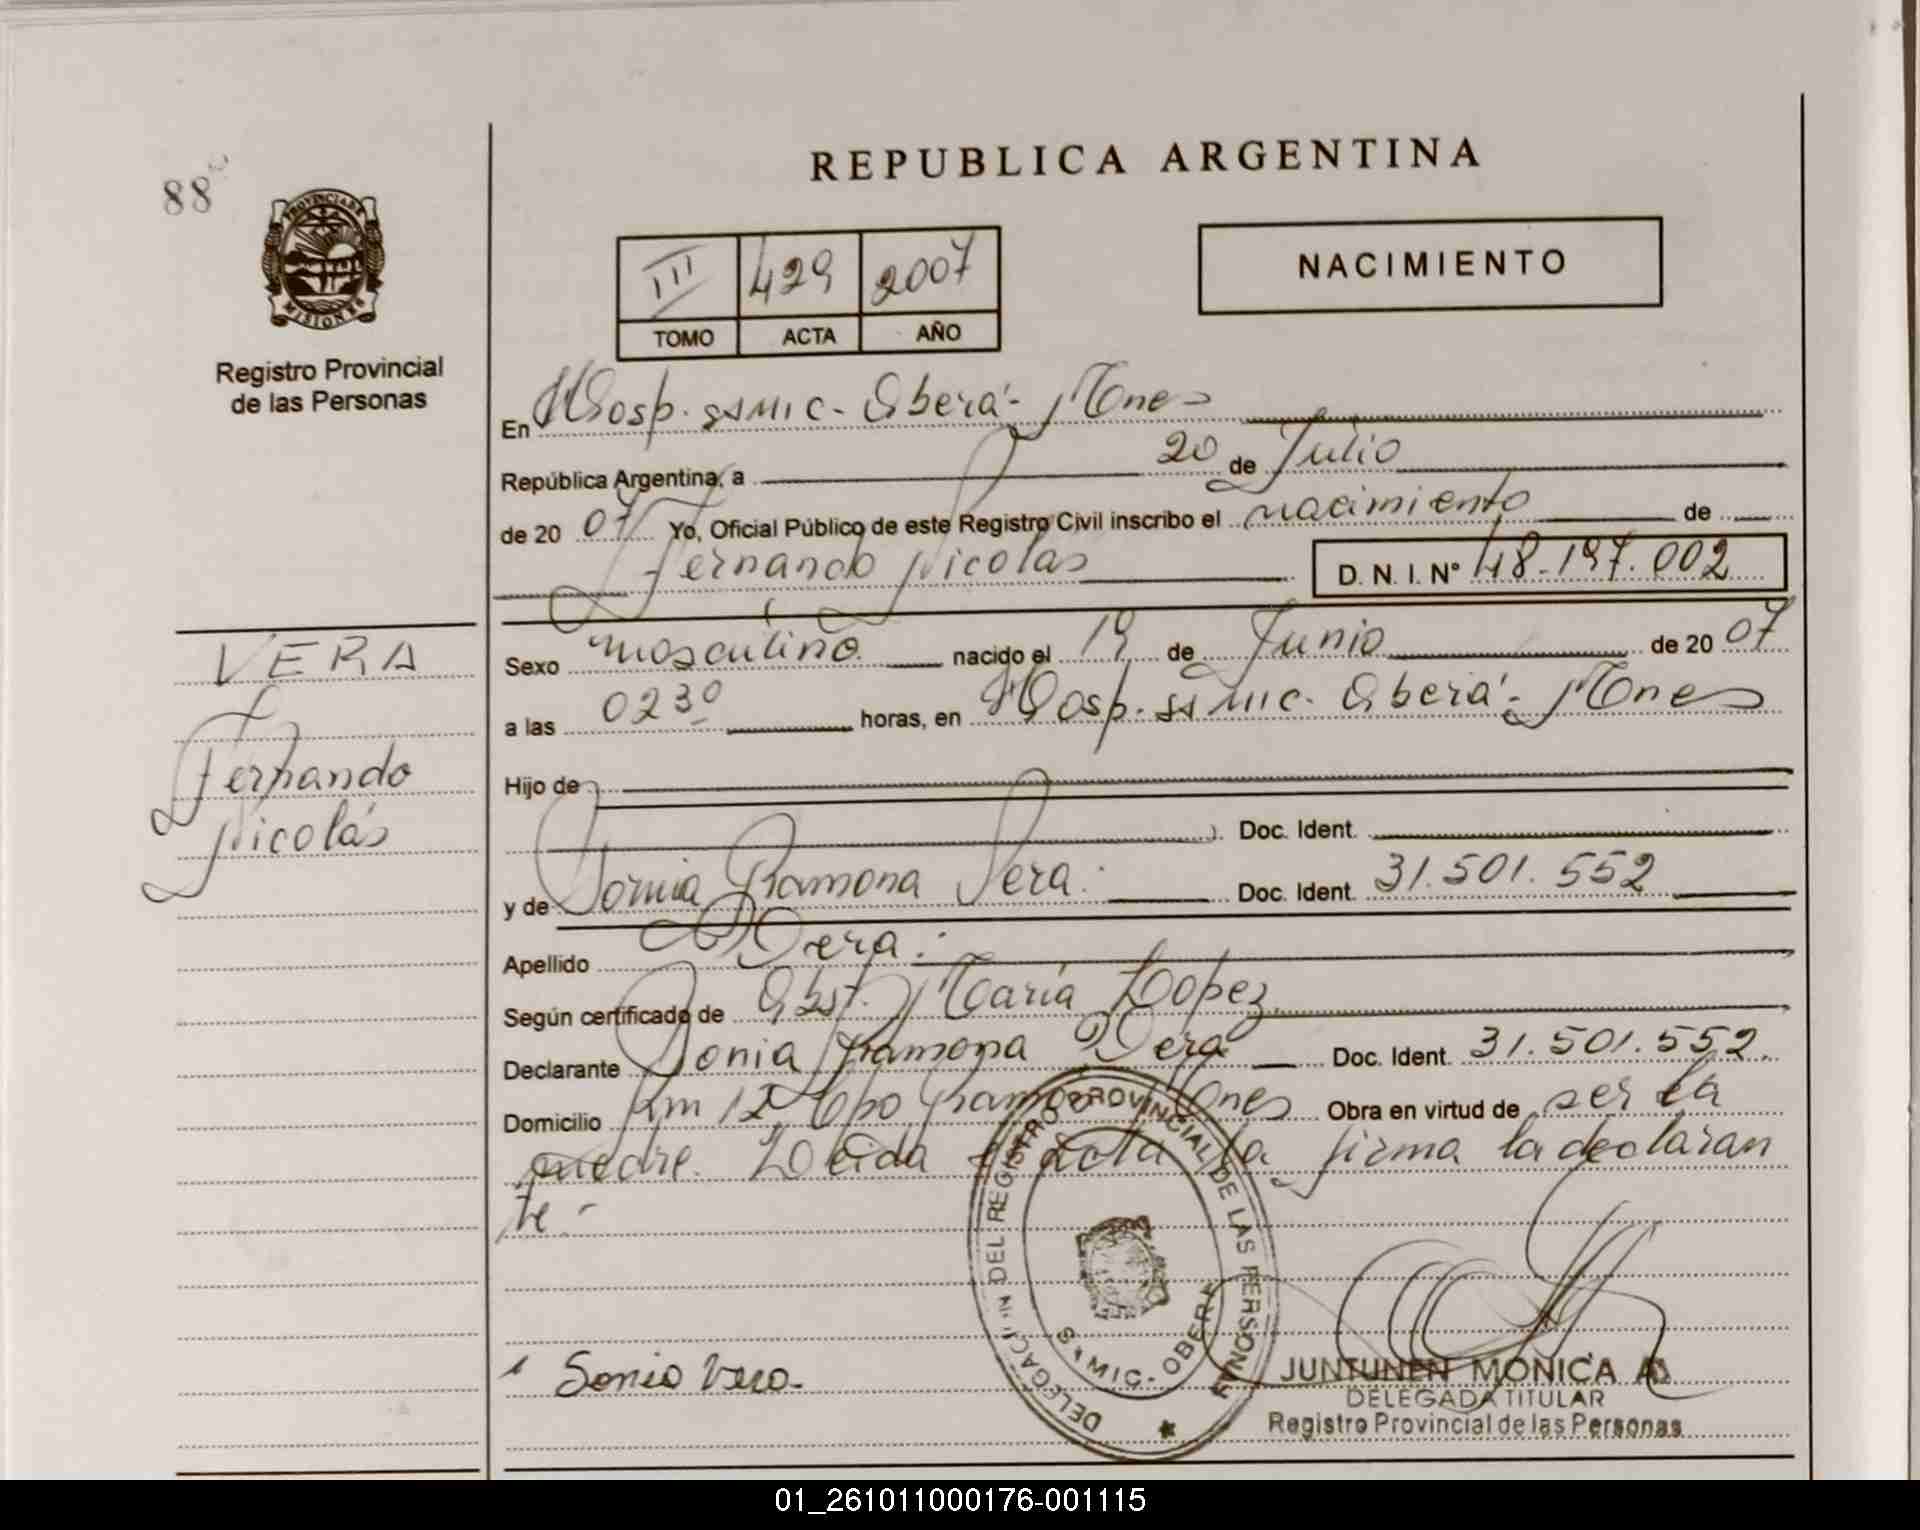 REPUBLICA ARGENTINA
88
PROVINCIA DE
MISIONES
Registro Provincial
de las Personas
III 429 2007
TOMO ACTA AÑO
NACIMIENTO
En Hosp. SAMIC - Oberá - Mnes
República Argentina, a 20 de Julio
de 2007 Yo, Oficial Público de este Registro Civil inscribo el nacimiento de
Fernando Nicolás D. N. I. Nº 48.197.002
VERA
Fernando
Nicolás
Sexo masculino nacido el 19 de Junio de 2007
a las 02 30 horas, en Hosp. SAMIC - Oberá - Mnes
Hijo de
Doc. Ident.
y de Sonia Ramona Vera. Doc. Ident. 31.501.552
Apellido Vera.
Según certificado de Obst. María Lopez
Declarante Sonia Ramona Vera Doc. Ident. 31.501.552
Domicilio Km 12 Cpo Ramón Mnes Obra en virtud de ser la
madre. Leida el acta la firma la declaran
te -
Sonia Vera
DELEGACION DEL REGISTRO PROVINCIAL DE LAS PERSONAS
SAMIC - OBERA
JUNTUNEN MONICA A.
DELEGADA TITULAR
Registro Provincial de las Personas
01_261011000176-001115